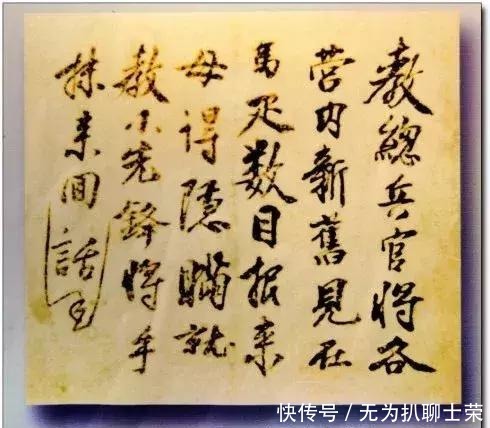 教總兵官將各
營内新舊見在
馬疋数目报来
毋得隱瞞就
教小先鋒將手
抹来囬話
快传号/无为扒聊士荣